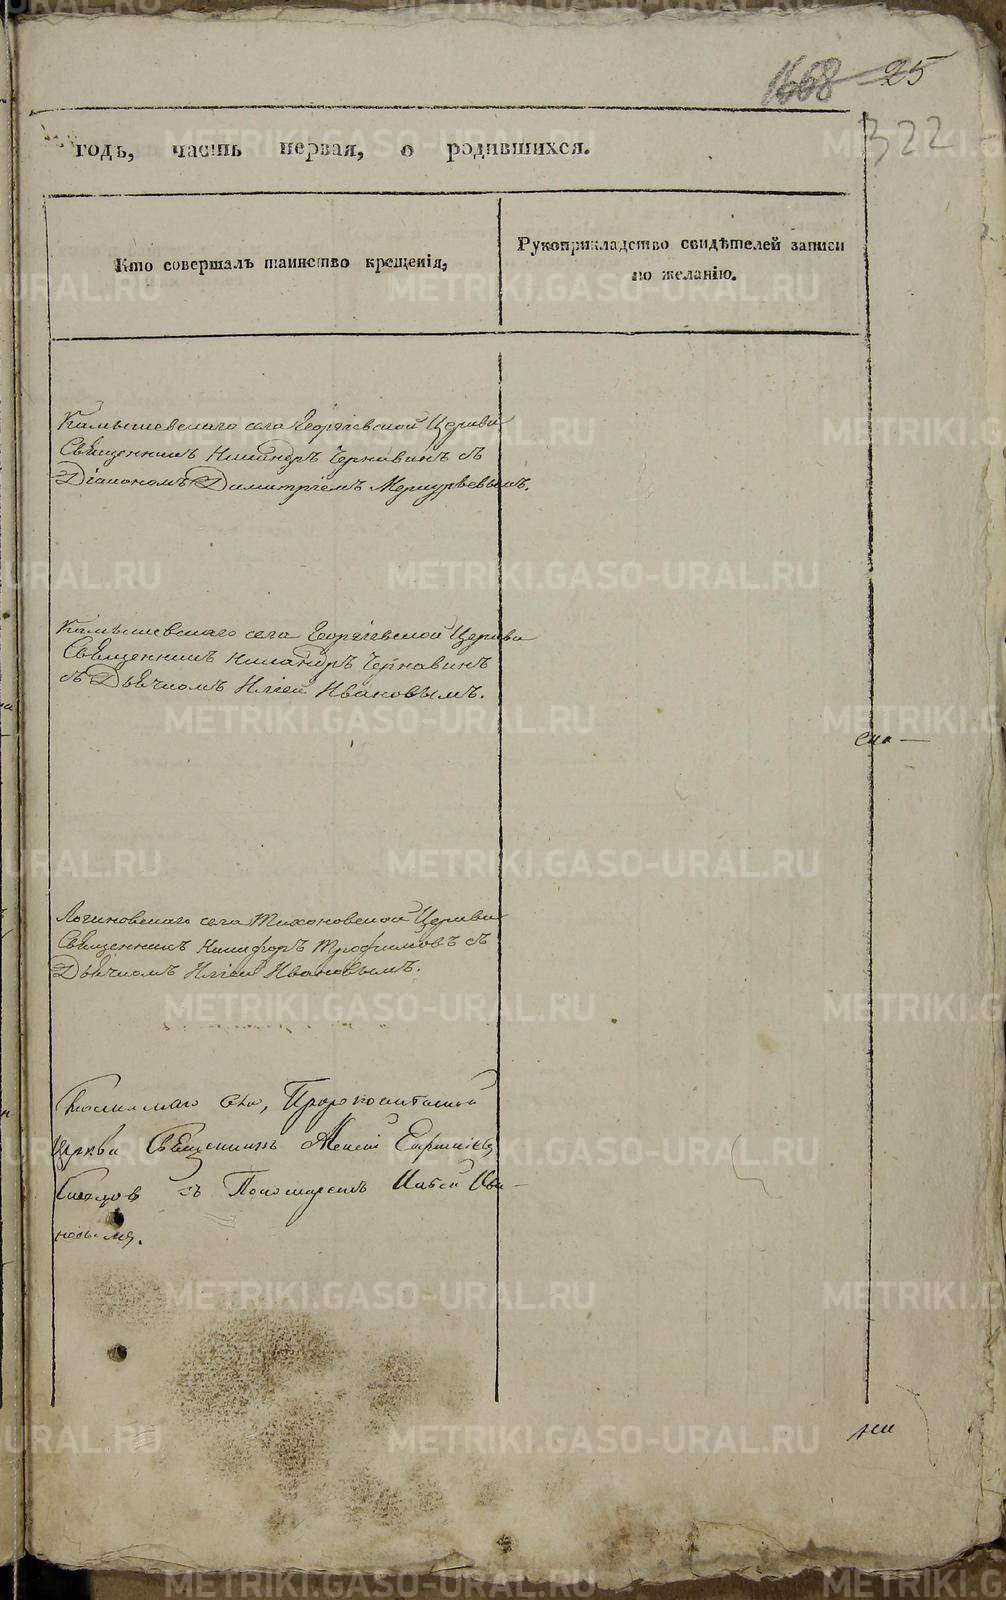 1668 25
322
годъ, часть первая, о родившихся.
Кто совершалъ таинство крещенія,
Рукоприкладство свидѣтелей записи
по желанію.
Камышевскаго села Георгіевской Церкви
Священникъ Никандръ Чернавинъ съ
Діакономъ Димитріемъ Меркурьевымъ.
Камышевскаго села Георгіевской Церкви
Священникъ Никандръ Чернавинъ
съ Дьячкомъ Иліей Ивановымъ.
Логиновскаго села Тихоновской Церкви
Священникъ Никифоръ Трофимовъ съ
Дьячкомъ Иліей Ивановымъ.
села, Пророкоильинской
Церкви Священникъ
съ Пономаремъ Ива-
новымъ.
METRIKI.GASO-URAL.RU